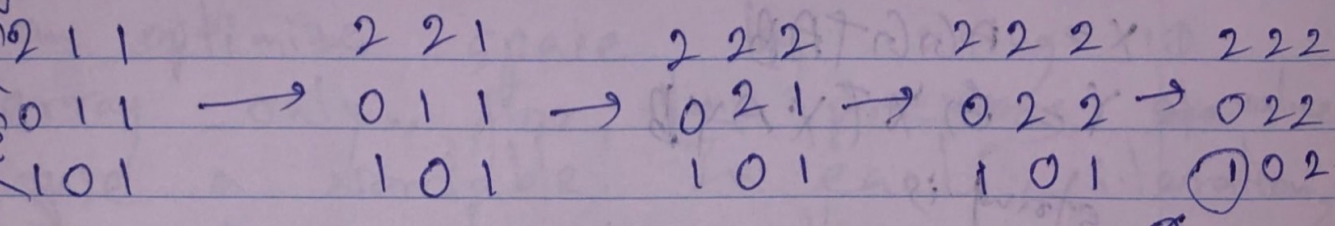 2 1 1 2 2 1 2 2 2 2 2 2 2 2 2
0 1 1 → 0 1 1 → 0 2 1 → 0 2 2 → 0 2 2
1 0 1 1 0 1 1 0 1 1 0 1 1 0 2